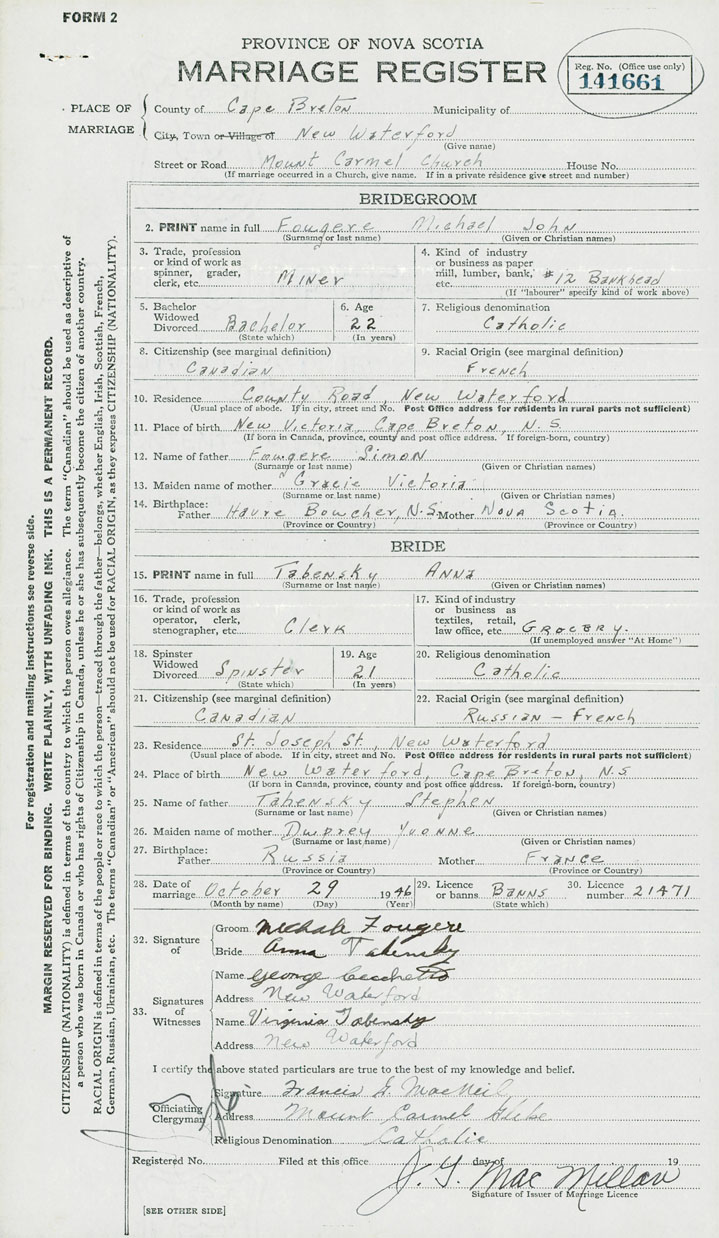 FORM 2
PROVINCE OF NOVA SCOTIA
MARRIAGE REGISTER
Reg. No. (Office use only)
141661
PLACE OF MARRIAGE
County of Cape Breton Municipality of
City, Town or Village of New Waterford
(Give name)
Street or Road Mount Carmel Church House No.
(If marriage occurred in a Church, give name. If in a private residence give street and number)
BRIDEGROOM
2. PRINT name in full Fougere Michael John
(Surname or last name) (Given or Christian names)
3. Trade, profession or kind of work as spinner, grader, clerk, etc. Miner
4. Kind of industry or business as paper mill, lumber, bank, etc. #12 Bankhead
(If "labourer" specify kind of work above)
5. Bachelor Widowed Divorced Bachelor
(State which)
6. Age 22
(In years)
7. Religious denomination
Catholic
8. Citizenship (see marginal definition)
Canadian
9. Racial Origin (see marginal definition)
French
10. Residence County Road, New Waterford
(Usual place of abode. If in city, street and No. Post Office address for residents in rural parts not sufficient)
11. Place of birth New Victoria, Cape Breton, N.S.
(If born in Canada, province, county and post office address. If foreign-born, country)
12. Name of father Fougere Simon
(Surname or last name) (Given or Christian names)
13. Maiden name of mother Gracie Victoria
(Surname or last name) (Given or Christian names)
14. Birthplace: Father Havre Boucher, N.S. Mother Nova Scotia.
(Province or Country) (Province or Country)
BRIDE
15. PRINT name in full Tabensky Anna
(Surname or last name) (Given or Christian names)
16. Trade, profession or kind of work as operator, clerk, stenographer, etc. Clerk
17. Kind of industry or business as textiles, retail, law office, etc. Grocery.
(If unemployed answer "At Home")
18. Spinster Widowed Divorced Spinster
(State which)
19. Age 21
(In years)
20. Religious denomination
Catholic
21. Citizenship (see marginal definition)
Canadian
22. Racial Origin (see marginal definition)
Russian - French
23. Residence St. Joseph St., New Waterford
(Usual place of abode. If in city, street and No. Post Office address for residents in rural parts not sufficient)
24. Place of birth New Waterford, Cape Breton, N.S
(If born in Canada, province, county and post office address. If foreign-born, country)
25. Name of father Tabensky Stephen
(Surname or last name) (Given or Christian names)
26. Maiden name of mother Duprey Yvonne
(Surname or last name) (Given or Christian names)
27. Birthplace: Father Russia Mother France
(Province or Country) (Province or Country)
28. Date of marriage October 29 1946
(Month by name) (Day) (Year)
29. Licence or banns Banns
(State which)
30. Licence number 21471
32. Signature of
Groom Michale Fougere
Bride Anna Tabensky
33. Signatures of Witnesses
Name George Cecchetto
Address New Waterford
Name Virginia Tabensky
Address New Waterford
I certify the above stated particulars are true to the best of my knowledge and belief.
Officiating Clergyman
Signature Francis G. MacNeil
Address Mount Carmel Glebe
Religious Denomination Catholic
Registered No. Filed at this office day of 19
J. G. MacMillan
Signature of Issuer of Marriage Licence
[SEE OTHER SIDE]
For registration and mailing instructions see reverse side.
MARGIN RESERVED FOR BINDING. WRITE PLAINLY, WITH UNFADING INK. THIS IS A PERMANENT RECORD.
CITIZENSHIP (NATIONALITY) is defined in terms of the country to which the person owes allegiance. The term "Canadian" should be used as descriptive of
a person who was born in Canada or who has rights of Citizenship in Canada, unless he or she has subsequently become the citizen of another country.
RACIAL ORIGIN is defined in terms of the people or race to which the person—traced through the father—belongs, whether English, Irish, Scottish, French,
German, Russian, Ukrainian, etc. The terms "Canadian" or "American" should not be used for RACIAL ORIGIN, as they express CITIZENSHIP (NATIONALITY).